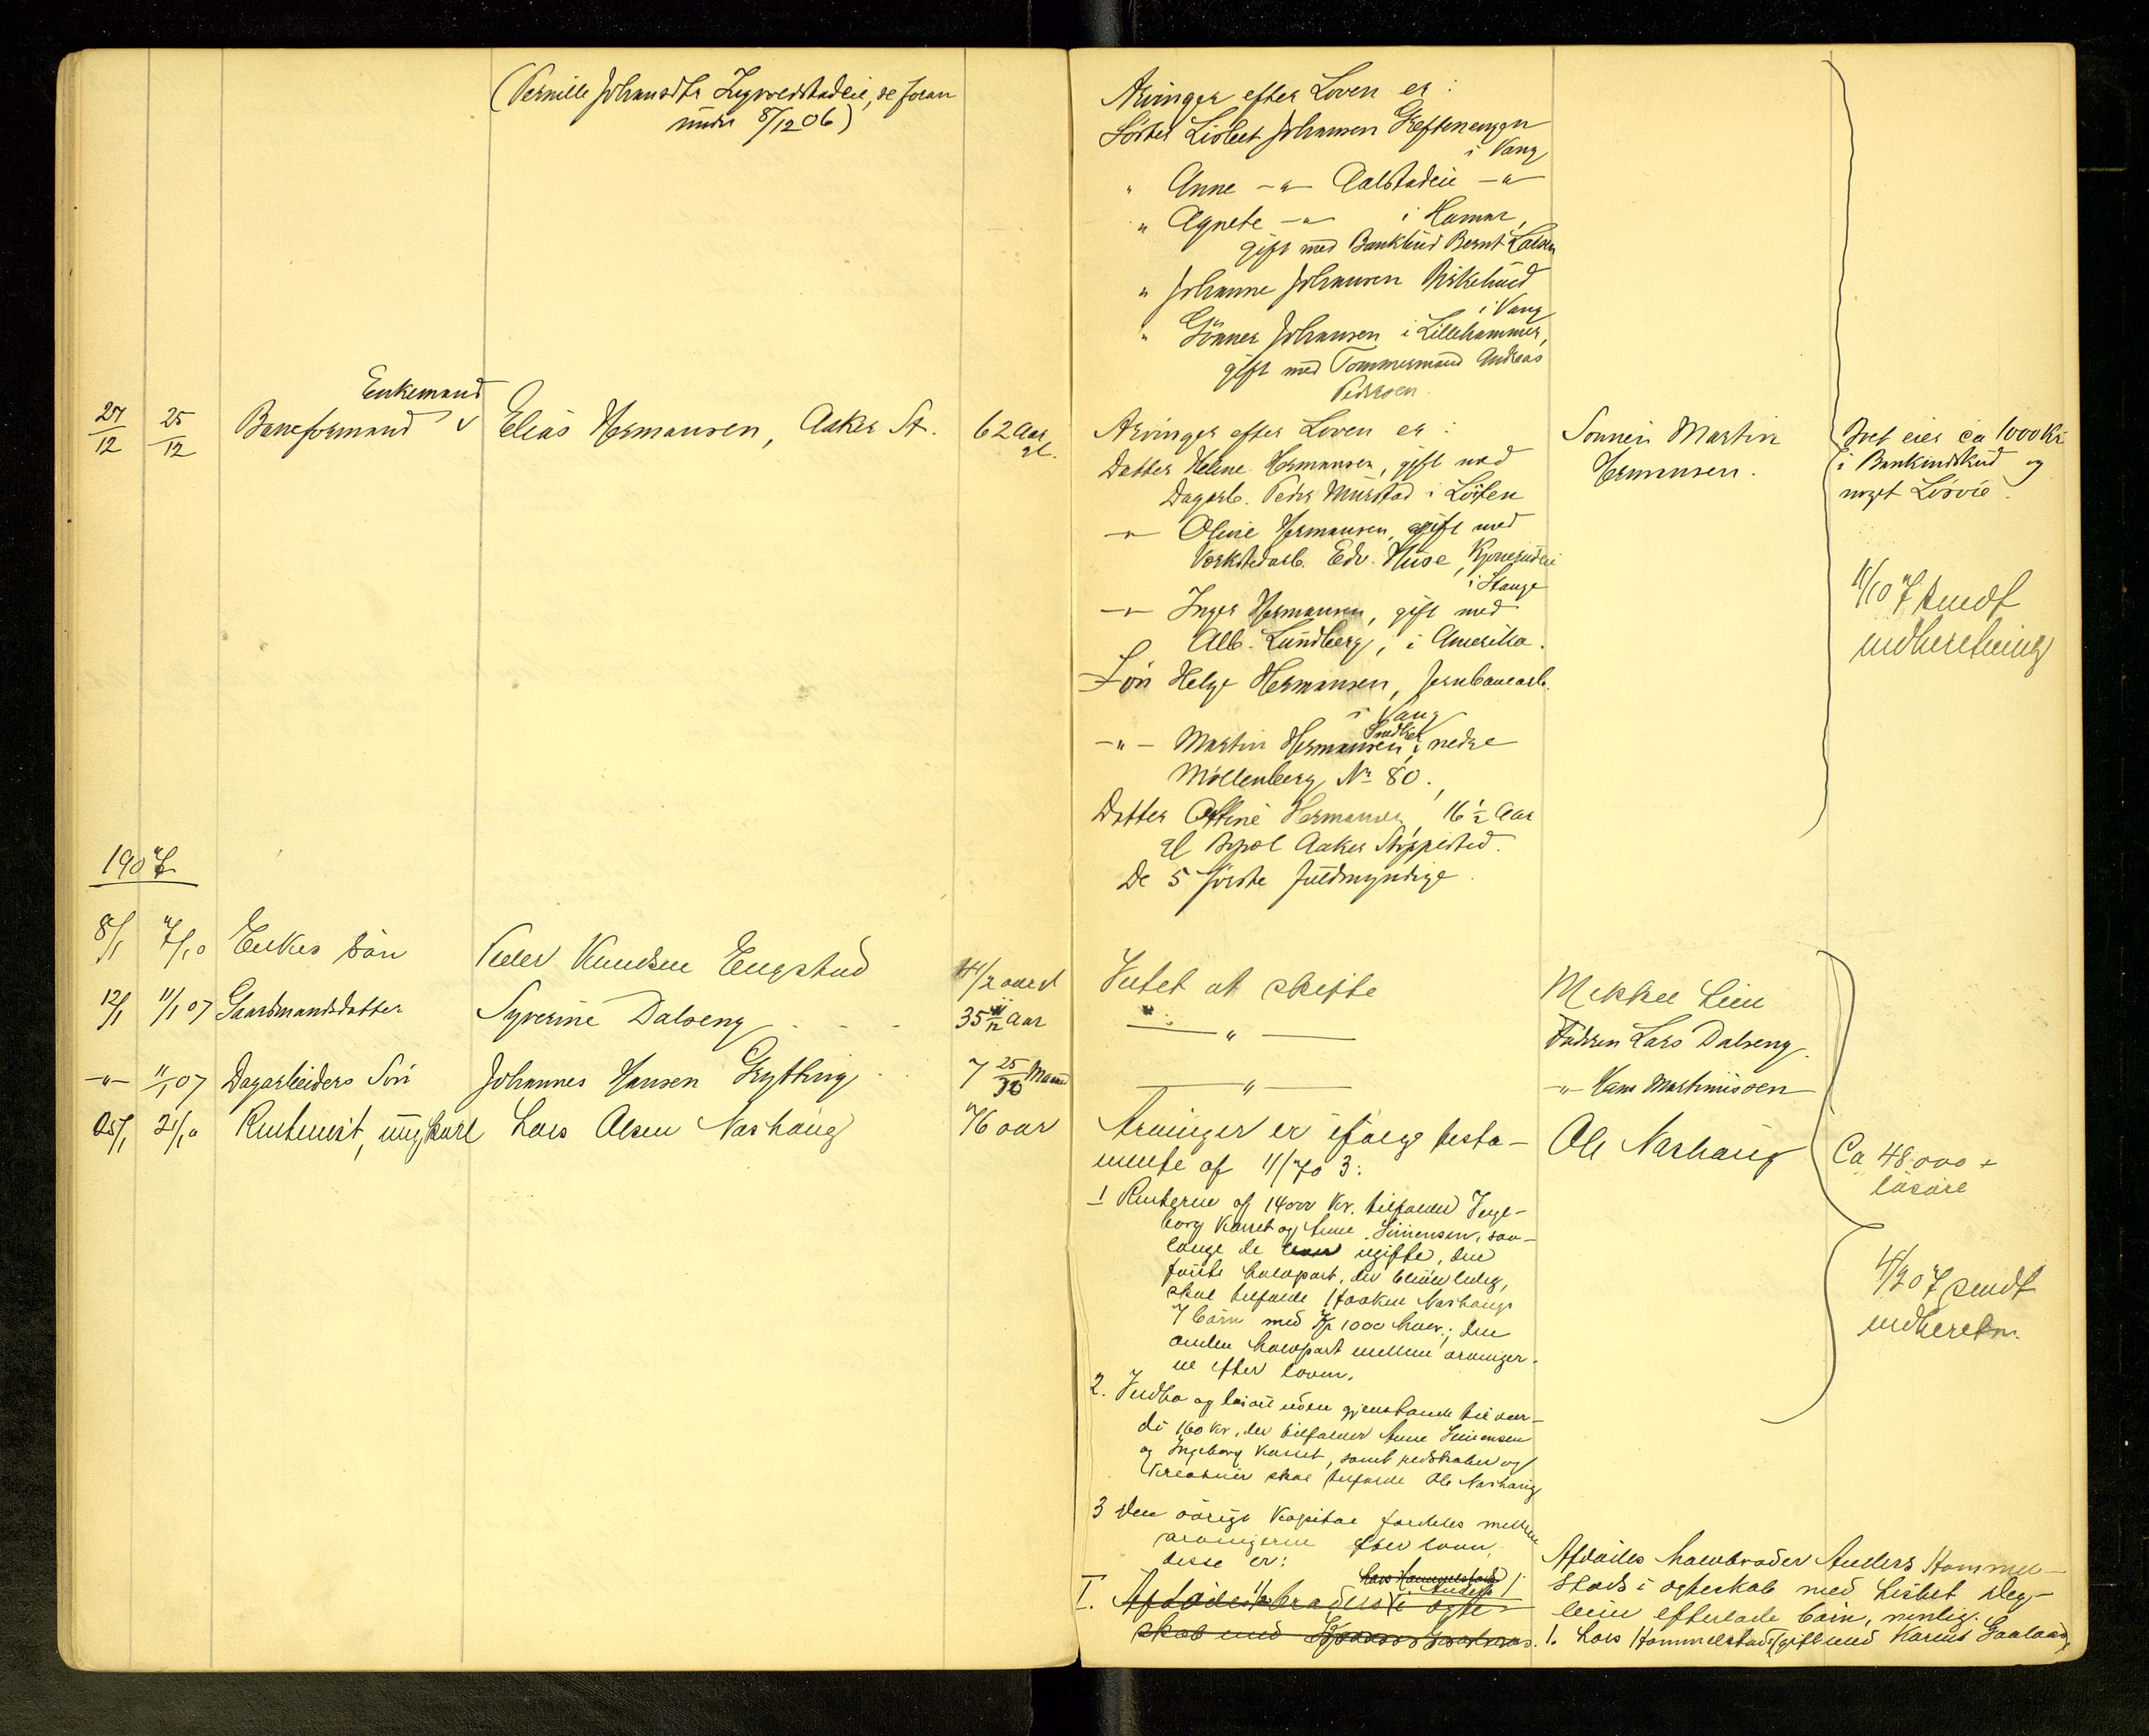 (Pernille Johansdtr Ingvoldstadeie, se foran
under 8/12 06)
Arvinger efter Loven er:
Söster Lisbet Johansen Greftenengen
i Vang
" Anne -"- Aalstadeie -"-
" Agnete -"- i Hamar,
gift med Bankbud Bernt Larsen
" Johanne Johansen Birkelund
i Vang
" Gunner Johansen i Lillehammer,
gift med Tømmermand Andreas
Pedersen.
27/12 25/12 Enkemand
Baneformand v Elias Hermansen, Aaker St. 62 Aar
gl.
Arvinger efter Loven er:
Datter Helene Hermansen, gift med
Dagarb. Peder Murstad i Löiten
-"- Oline Hermansen, gift med
Værkstedarb. Edv. Huse,
i Stange
-"- Inger Hermansen, gift med
Alb. Lundberg, i Amerika.
Sön Helge Hermansen, Jernbanearb.
i Vang
-"- Martin Hermansen, Snedker, nedre
Möllenberg No 80.
Datter Hermansen, 16 1/2 Aar
gl Bopæl Aaker Stoppested.
De 5 förste fuldmyndige.
Sönnen Martin
Hermansen.
Boet eier ca 1000 Kr
i Bankindskud og
noget Lösöre.
4/1 07 sendt
indberetning
1907
8/1 7/1 0 Enkes sön Peder Knudsen Engstad 4 1/2 aar gl Intet at skifte Mekkel Lien
12/1 11/1 07 Gaardmandsdatter Syverine Dalseng 35 11/12 Aar -"- Faderen Lars Dalseng
-"- 11/1 07 Dagarbeiders Sön Johannes Hansen Grything 7 25/30 Maaned -"- -"- Hans Martinussen
25/1 21/1 0 Rentenist, ungkarl Lars Olsen Nashaug 76 aar
Arvinger er ifölge testa-
mente af 11/7 03:
Ole Nashaug
Ca 48.000 +
lösöre
1 Renterne af 14000 Kr. tilfalder Inge-
borg Karset og Anne Simensen, saa-
længe de er ugifte, den
förste halvpart, der bliver ledig,
skal tilfalde Haaken Nashaugs
7 börn med Kr 1000 hver; den
anden halvpart mellem arvinger-
ne efter loven.
2. Indbo og lösöre uden gjenstande til vær-
di 160 Kr, der tilfalder Anne Simensen
og Ingeborg Karset, samt redskaber og
Kreaturer skal tilfalde Ole Nashaug
3 Den övrige Kapital fordeles mellem
arvingerne efter loven,
disse er:
4/2 07 sendt
indberetn.
I. Afdödes 1/2 broder Anders i ægte-
skab med
Afdödes halvbroder Anders Hommel-
stads i ægteskab med Lisbet Deg-
lien efterlade börn, nemlig:
1. Lars Hommelstad, gift med Karine Gaalaas,